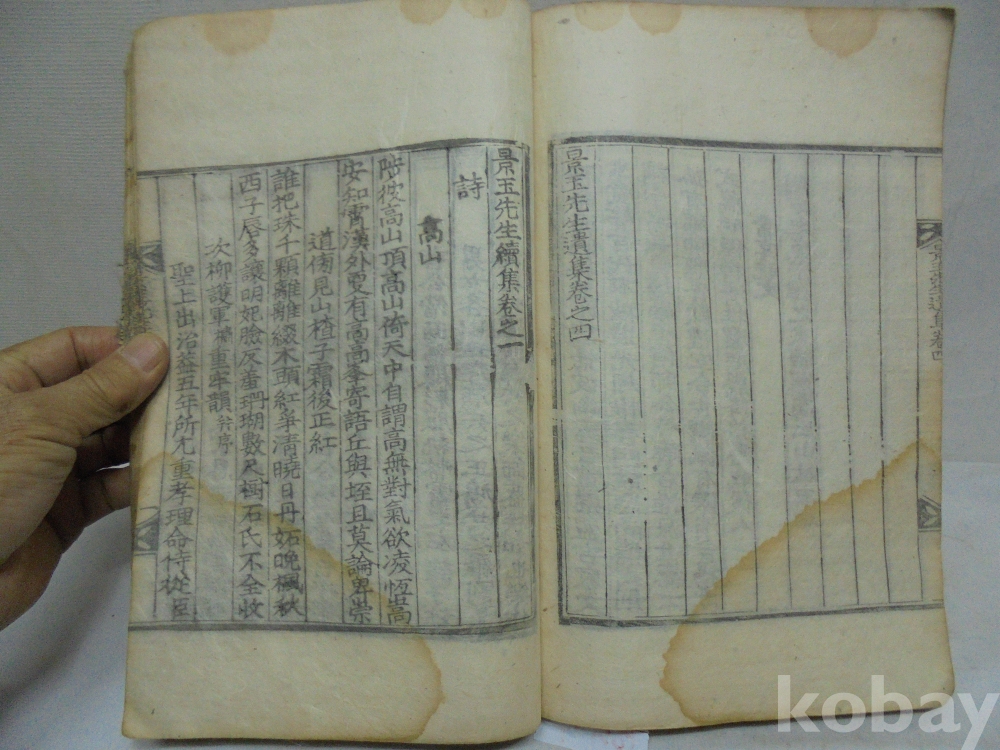 景玉先生遺集卷之四
景玉先生續集卷之一
詩
高山
陟彼高山頂高山倚天中自謂高無對氣欲凌恆嵩
安知霄漢外更有高高峯寄語丘與垤且莫論卑崇
道傍見山楂子霜後正紅
誰把珠千顆離離綴木頭紅爭清曉日丹妬晩楓秋
西子唇多讓明妃臉反羞珊瑚數尺樹石氏不全收
次柳護軍重牢韻 幷序
聖上出治益五年所尤重孝理命侍從臣
kobay